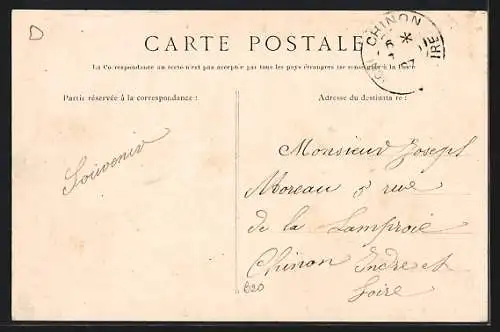 D
CARTE POSTALE
La Correspondance au recto n'est pas acceptée par tous les pays étrangers (se renseigner à la Poste)
CHINON
Partie réservée à la correspondance :
Adresse du destinataire :
Souvenir
Monsieur Joseph
Moreau 8 rue
de la Lamproie
Chinon Indre et
Loire
B20